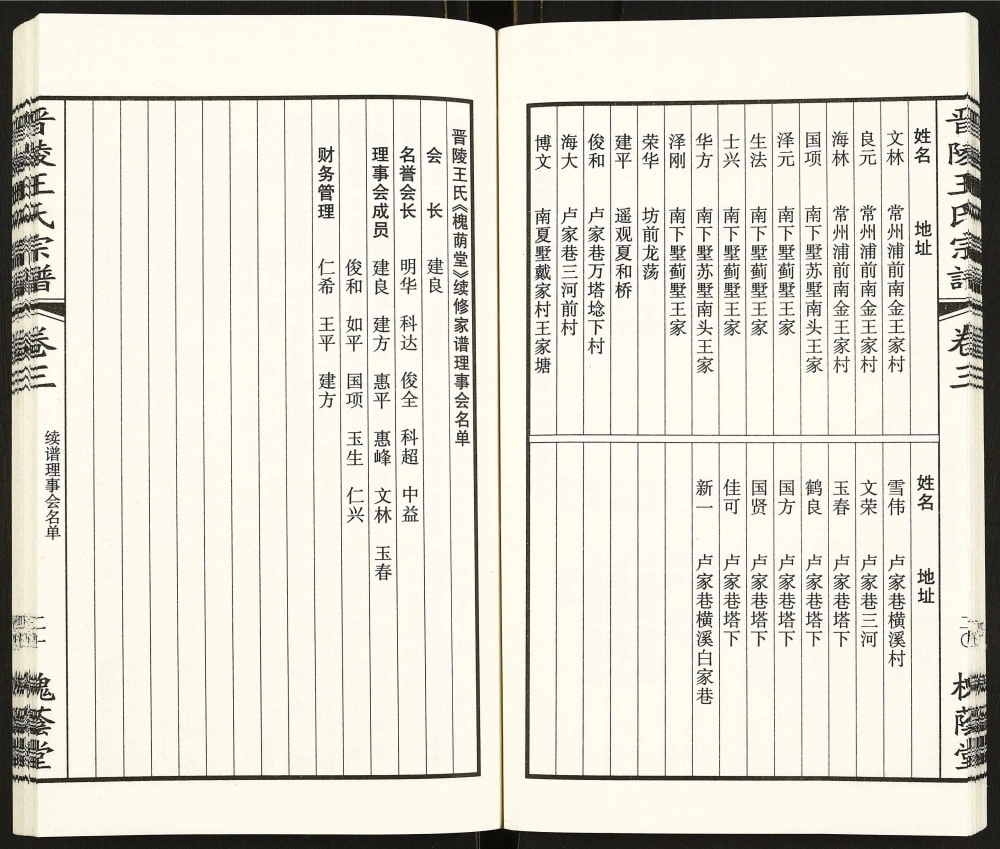 晋陵王氏宗谱
卷三
槐荫堂
姓名 地址
文林 常州浦前南金王家村
良元 常州浦前南金王家村
海林 常州浦前南金王家村
国项 南下墅苏墅南头王家
泽元 南下墅蓟墅王家
生法 南下墅蓟墅王家
士兴 南下墅蓟墅王家
华方 南下墅苏墅南头王家
泽刚 南下墅蓟墅王家
荣华 坊前龙荡
建平 遥观夏和桥
俊和 卢家巷万塔埝下村
海大 卢家巷三河前村
博文 南夏墅戴家村王家塘
姓名 地址
雪伟 卢家巷横溪村
文荣 卢家巷三河
玉春 卢家巷塔下
鹤良 卢家巷塔下
国方 卢家巷塔下
国贤 卢家巷塔下
佳可 卢家巷塔下
新一 卢家巷横溪白家巷
晋陵王氏《槐荫堂》续修家谱理事会名单
会长 建良
名誉会长 明华 科达 俊全 科超 中益
理事会成员 建良 建方 惠平 惠峰 文林 玉春
俊和 如平 国项 玉生 仁兴
财务管理 仁希 王平 建方
晋陵王氏宗谱
卷三
续谱理事会名单
槐荫堂